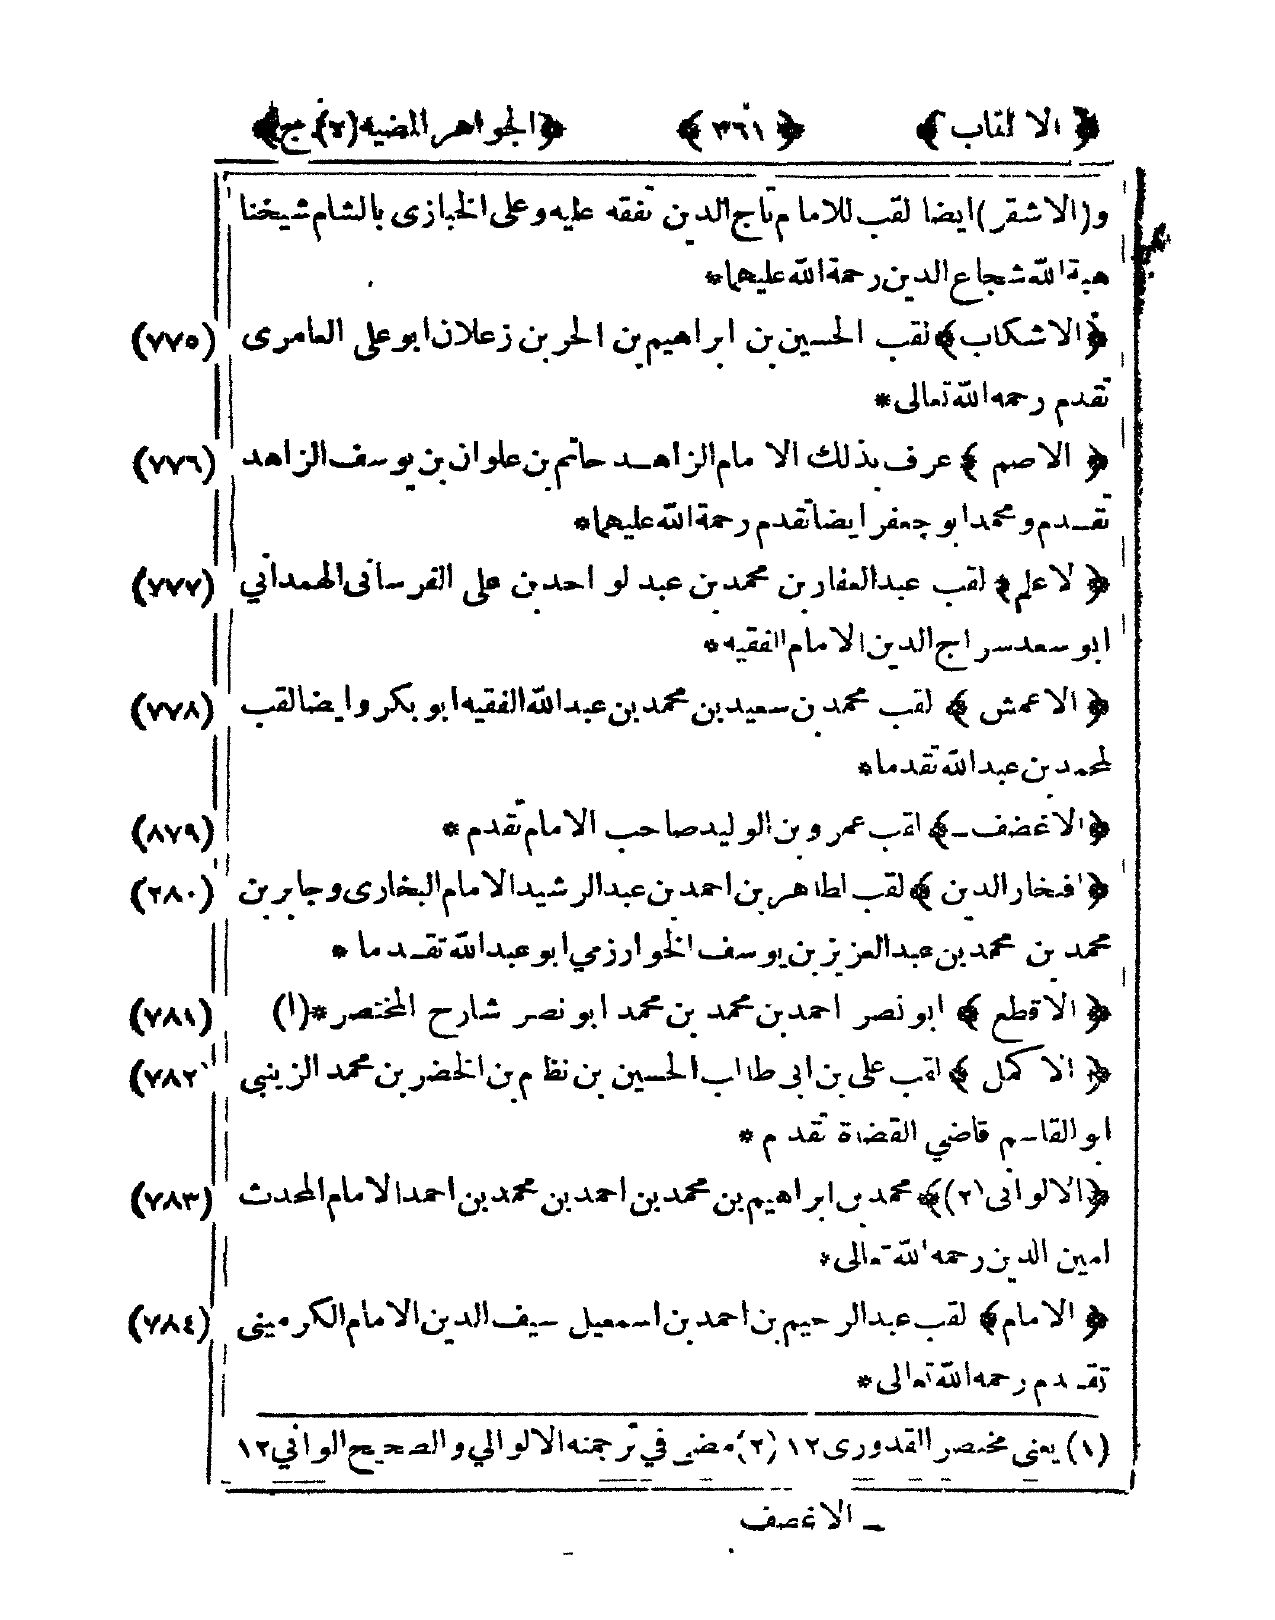 ﴿الالقاب﴾ ﴿٣٦١﴾ ﴿الجواهر المضيه(٢) ج﴾
و(الاشقر)ايضا لقب للامام تاج الدين تفقه عليه وعلى الخبازى بالشام شيخنا
هبة الله شجاع الدين رحمة الله عليهما*
﴿الاشكاب﴾ لقب الحسين بن ابراهيم بن الحر بن زعلان ابو على العامرى (٧٧٥)
تقدم رحمه الله تعالى*
﴿الاصم﴾ عرف بذلك الامام الزاهد حاتم بن علوان بن يوسف الزاهد (٧٧٦)
تقدم و محمد ابو جعفر ايضا تقدم رحمة الله عليهما*
﴿لاعلم﴾ لقب عبدالغفار بن محمد بن عبد لو احد بن على الفرسانى الهمدانى (٧٧٧)
ابو سعد سراج الدين الامام الفقيه*
﴿الاعمش﴾ لقب محمد ن سعيد بن محمد بن عبدالله الفقيه ابو بكر و ايضا لقب (٧٧٨)
لمحمد بن عبدالله تقدما*
﴿الاغضف-﴾ لقب عمرو بن الوليد صاحب الامام تقدم* (٨٧٩)
﴿افتخار الدين﴾ لقب لطاهر بن احمد بن عبدالرشيد الامام البخارى و جابر بن (٢٨٠)
محمد بن محمد بن عبدالعزيز بن يوسف الخوارزمي ابو عبدالله تقدما*
﴿الاقطع﴾ ابو نصر احمد بن محمد بن محمد ابو نصر شارح المختصر*(١) (٧٨١)
﴿الاكمل﴾ لقب على بن ابى طالب الحسين بن نظام بن الخضر بن محمد الزينبي (٧٨٢)
ابو القاسم قاضي القضاة تقدم*
﴿الالوانى(٢)﴾ محمد بن ابراهيم بن محمد بن احمد بن محمد بن احمد الامام المحدث (٧٨٣)
امين الدين رحمه الله تعالى*
﴿الامام﴾ لقب عبدالرحيم بن احمد بن اسمعيل سيف الدين الامام الكرمينى (٧٨٤)
تقدم رحمه الله تعالى*
(١) يعنى مختصر القدورى ١٢ (٢) مضى في ترجمته الالوالي و الصحيح الواني ١٢
ـ الاغصف